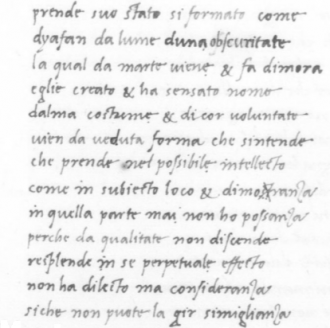 prende suo stato si formato come
dyafan da lume duna obscuritate
la qual da marte viene & fa dimora
eglie creato & ha sensato nome
dalma costume & di cor voluntate
vien da veduta forma che sintende
che prende nel possibile intellecto
come in subiecto loco & dimostranza
in quella parte mai non ho possanza
perche da qualitate non discende
resplende in se perpetuale effecto
non ha dilecto ma consideranza
siche non puote la gir simiglianza